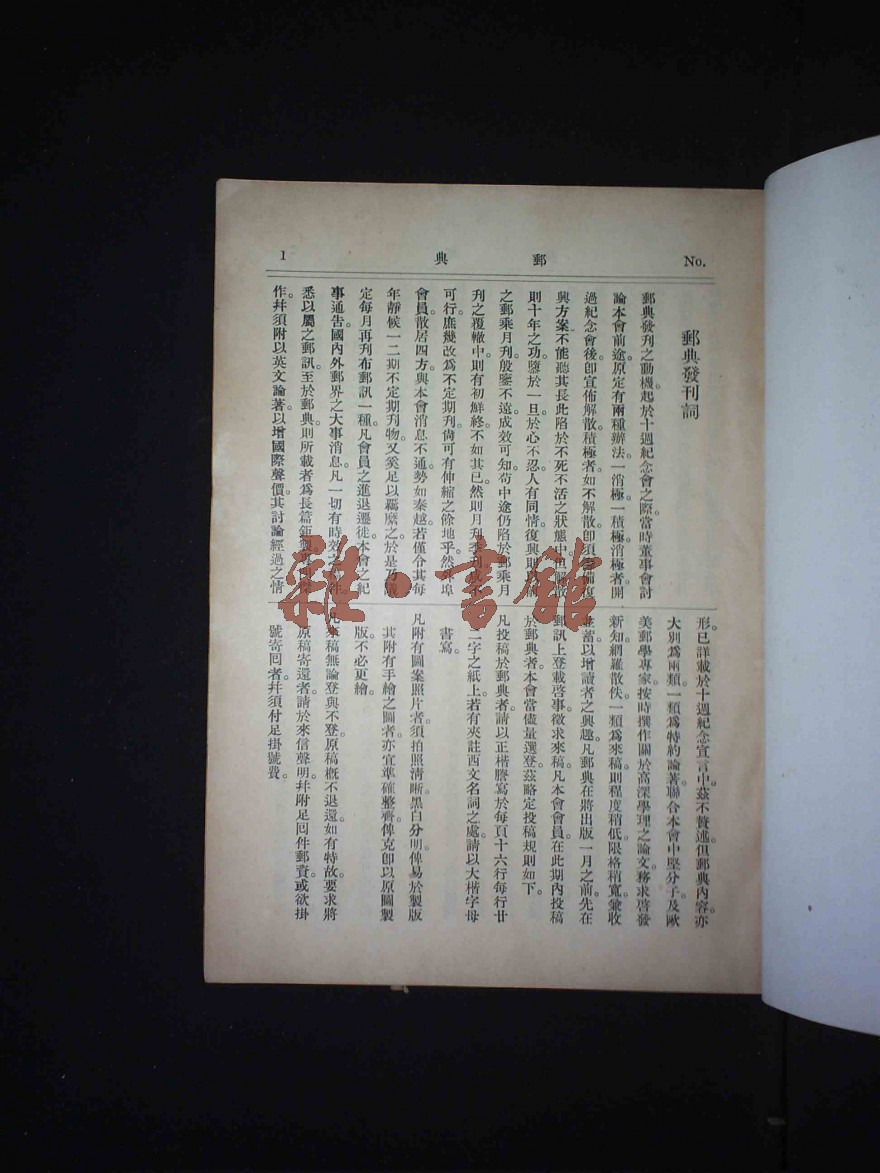 No.
郵典
1
郵典發刊詞
郵典發刊之動機。起於十週紀念會之際。當時董事會討
論本會前途。原定有兩種辦法。一消極。一積極。消極者。開
過紀念會後。卽宣佈解散。積極者。如不解散。卽須
興方案。不能聽其長此陷於不死不活之狀態中。
則十年之功。墮於一旦。於心不忍。人有同情。復興則
之郵乘月刊。殷鑒不遠。成效可知。苟中途仍陷於郵乘月
刊之覆轍中。則有初鮮終。不如其已。然則月刊
可行。庶幾改爲不定期刊。尙可有伸縮之餘地乎。然 埠
會員。散居四方。與本會消息不通。勢如秦越。若僅令其每
年靜候一二期不定期刊物。又奚足以羈縻之。於是乃
定每月再刊布郵訊一種。凡會員之進退遷徙。本會之紀
事通告。國內外郵界之大事消息。凡一切有時效之 件。
悉以屬之郵訊。至於郵典。則所載者爲長篇鉅製
作。幷須附以英文論著。以增國際聲價。其討論經過之情
形。已詳載於十週紀念宣言中。茲不贅述。但郵典內容。亦
大別爲兩類。一類爲特約論著。聯合本會中堅分子。及歐
美郵學專家。按時撰作關於高深學理之論文。務求啓發
新知。網羅散佚。一類爲來稿。則程度稍低。限格稍寬。兼收
並蓄。以增讀者之興趣。凡郵典在將出版一月之前。先在
郵訊上登載啓事。徵求來稿。凡本會會員。在此期內投稿
於郵典者。本會當儘量選登。茲略定投稿規則如下。
凡投稿於郵典者。請以正楷謄寫於每頁十六行每行廿
二字之紙上。若有夾註西文名詞之處。請以大楷字母
書寫。
凡附有圖案照片者。須拍照清晰。黑白分明。俾易於製版
其附有手繪之圖者。亦宜準確整齊。俾克卽以原圖製
版。不必更繪。
凡來稿無論登與不登。原稿槪不退還。如有特故。要求將
原稿寄還者。請於來信聲明。幷附足回件郵資。或欲掛
號寄回者。幷須付足掛號費。
雜·書館